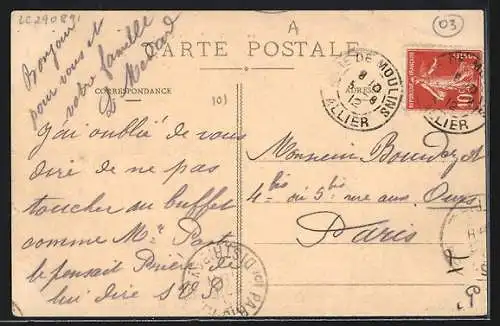 LC290891
A
03
Bonjour
pour vous et
votre famille
CARTE POSTALE
CORRESPONDANCE
101
DE MOULINS
8 12
ALLIER
REPUBLIQUE FRANÇAISE
10
J'ai oublié de vous
dire de ne pas
toucher au buffet
comme Mr
le pensait Prière de
lui dire S V P
Monsieur
4 bis ou 5 bis rue aux Ours
Paris
PARIS DISTRIBUTION